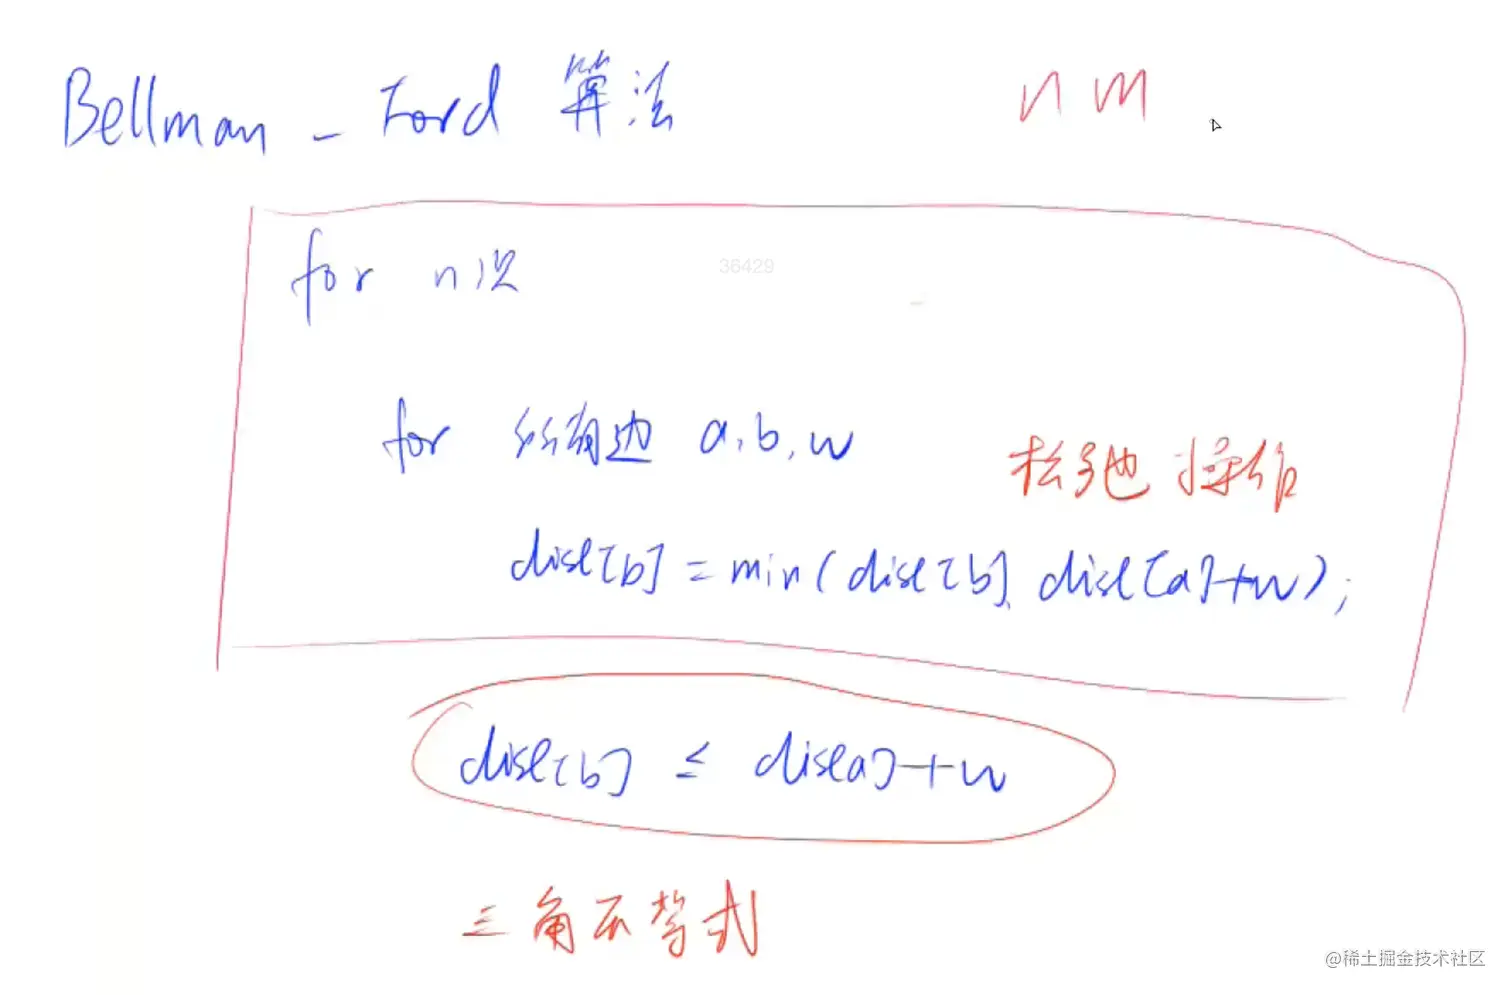 Bellman - Ford 算法 n m
for n次
36429
for 所有边 a,b,w
松弛操作
dist[b] = min(dist[b], dist[a]+w);
dist[b] ≤ dist[a]+w
三角不等式
@稀土掘金技术社区